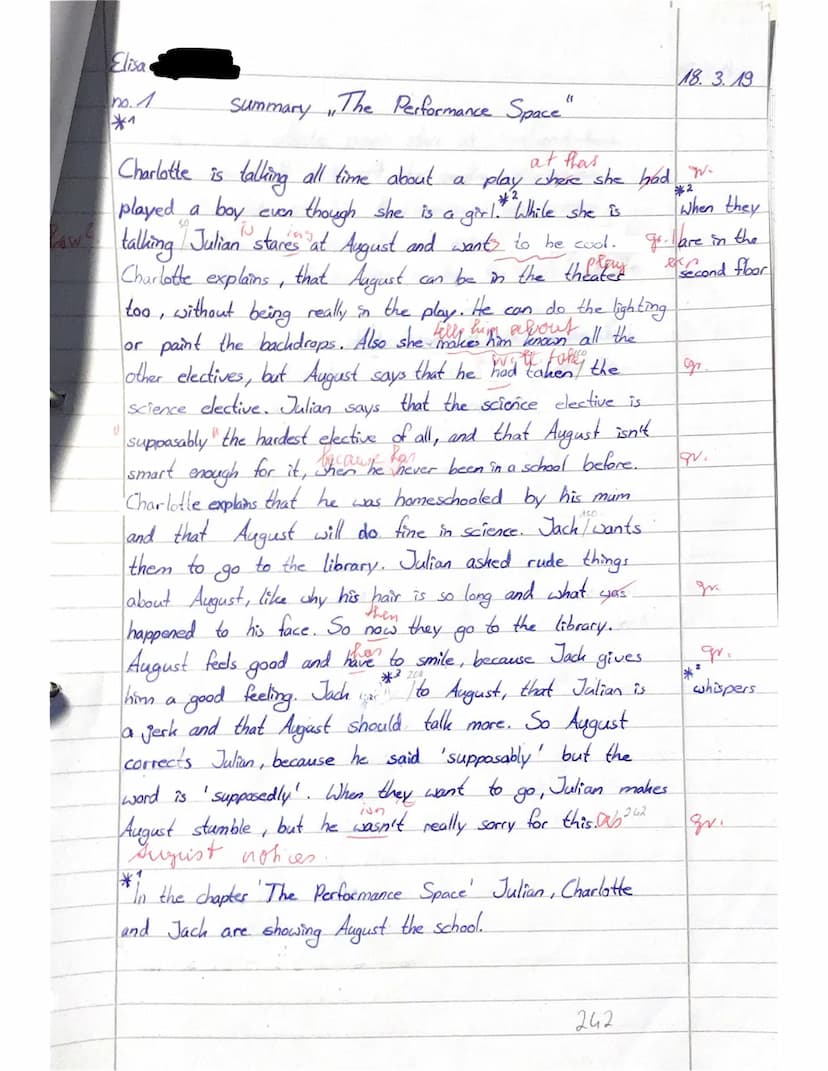 Elisa
18. 3. 19
no. 1 Summary „The Performance Space"
*1
at that
Charlotte is talking all time about a play where she had gr.
played a boy even though she is a girl.*2 While she is *2 When they
50 is ing
talking / Julian stares at August and wants to be cool. gr. are in the
play ex
Charlotte explains, that August can be in the theater second floor
too, without being really in the play. He can do the lighting
tells him about
or paint the backdrops. Also she makes him known all the
will take
other electives, but August says that he had taken / the gr.
science elective. Julian says that the science elective is
"supposably" the hardest elective of all, and that August isn't
because has
smart enough for it, when he never been in a school before. gr.
Charlotte explains that he was homeschooled by his mum
and that August will do fine in science. Jack / wants
150
them to go to the library. Julian asked rude things
about August, like why his hair is so long and what was gr.
then
happened to his face. So now they go to the library.
has
August feels good and have to smile, because Jack gives gr.
*3 200 *3
him a good feeling. Jack / to August, that Julian is whispers
a jerk and that August should talk more. So August
corrects Julian, because he said 'supposably' but the
word is 'supposedly'. When they want to go, Julian makes
isn
August stumble, but he wasn't really sorry for this. 242 gr.
August notices.
*1
In the chapter 'The Performance Space' Julian, Charlotte
and Jack are showing August the school.
242